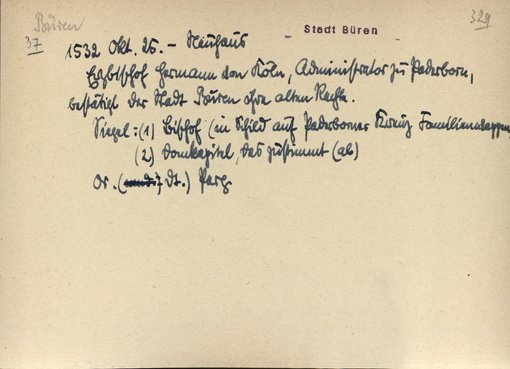 Büren
37
Stadt Büren
329
1532 Okt. 25. - Neuhaus
Erzbischof Hermann von Köln, Administrator zu Paderborn,
bestätigt der Stadt Büren ihre alten Rechte.
Siegel: (1) Bischof (im Schild auf Paderborner Kreuz Familienwappen)
(2) Domkapitel, das zustimmt (ab)
Or. (dt.) Perg.